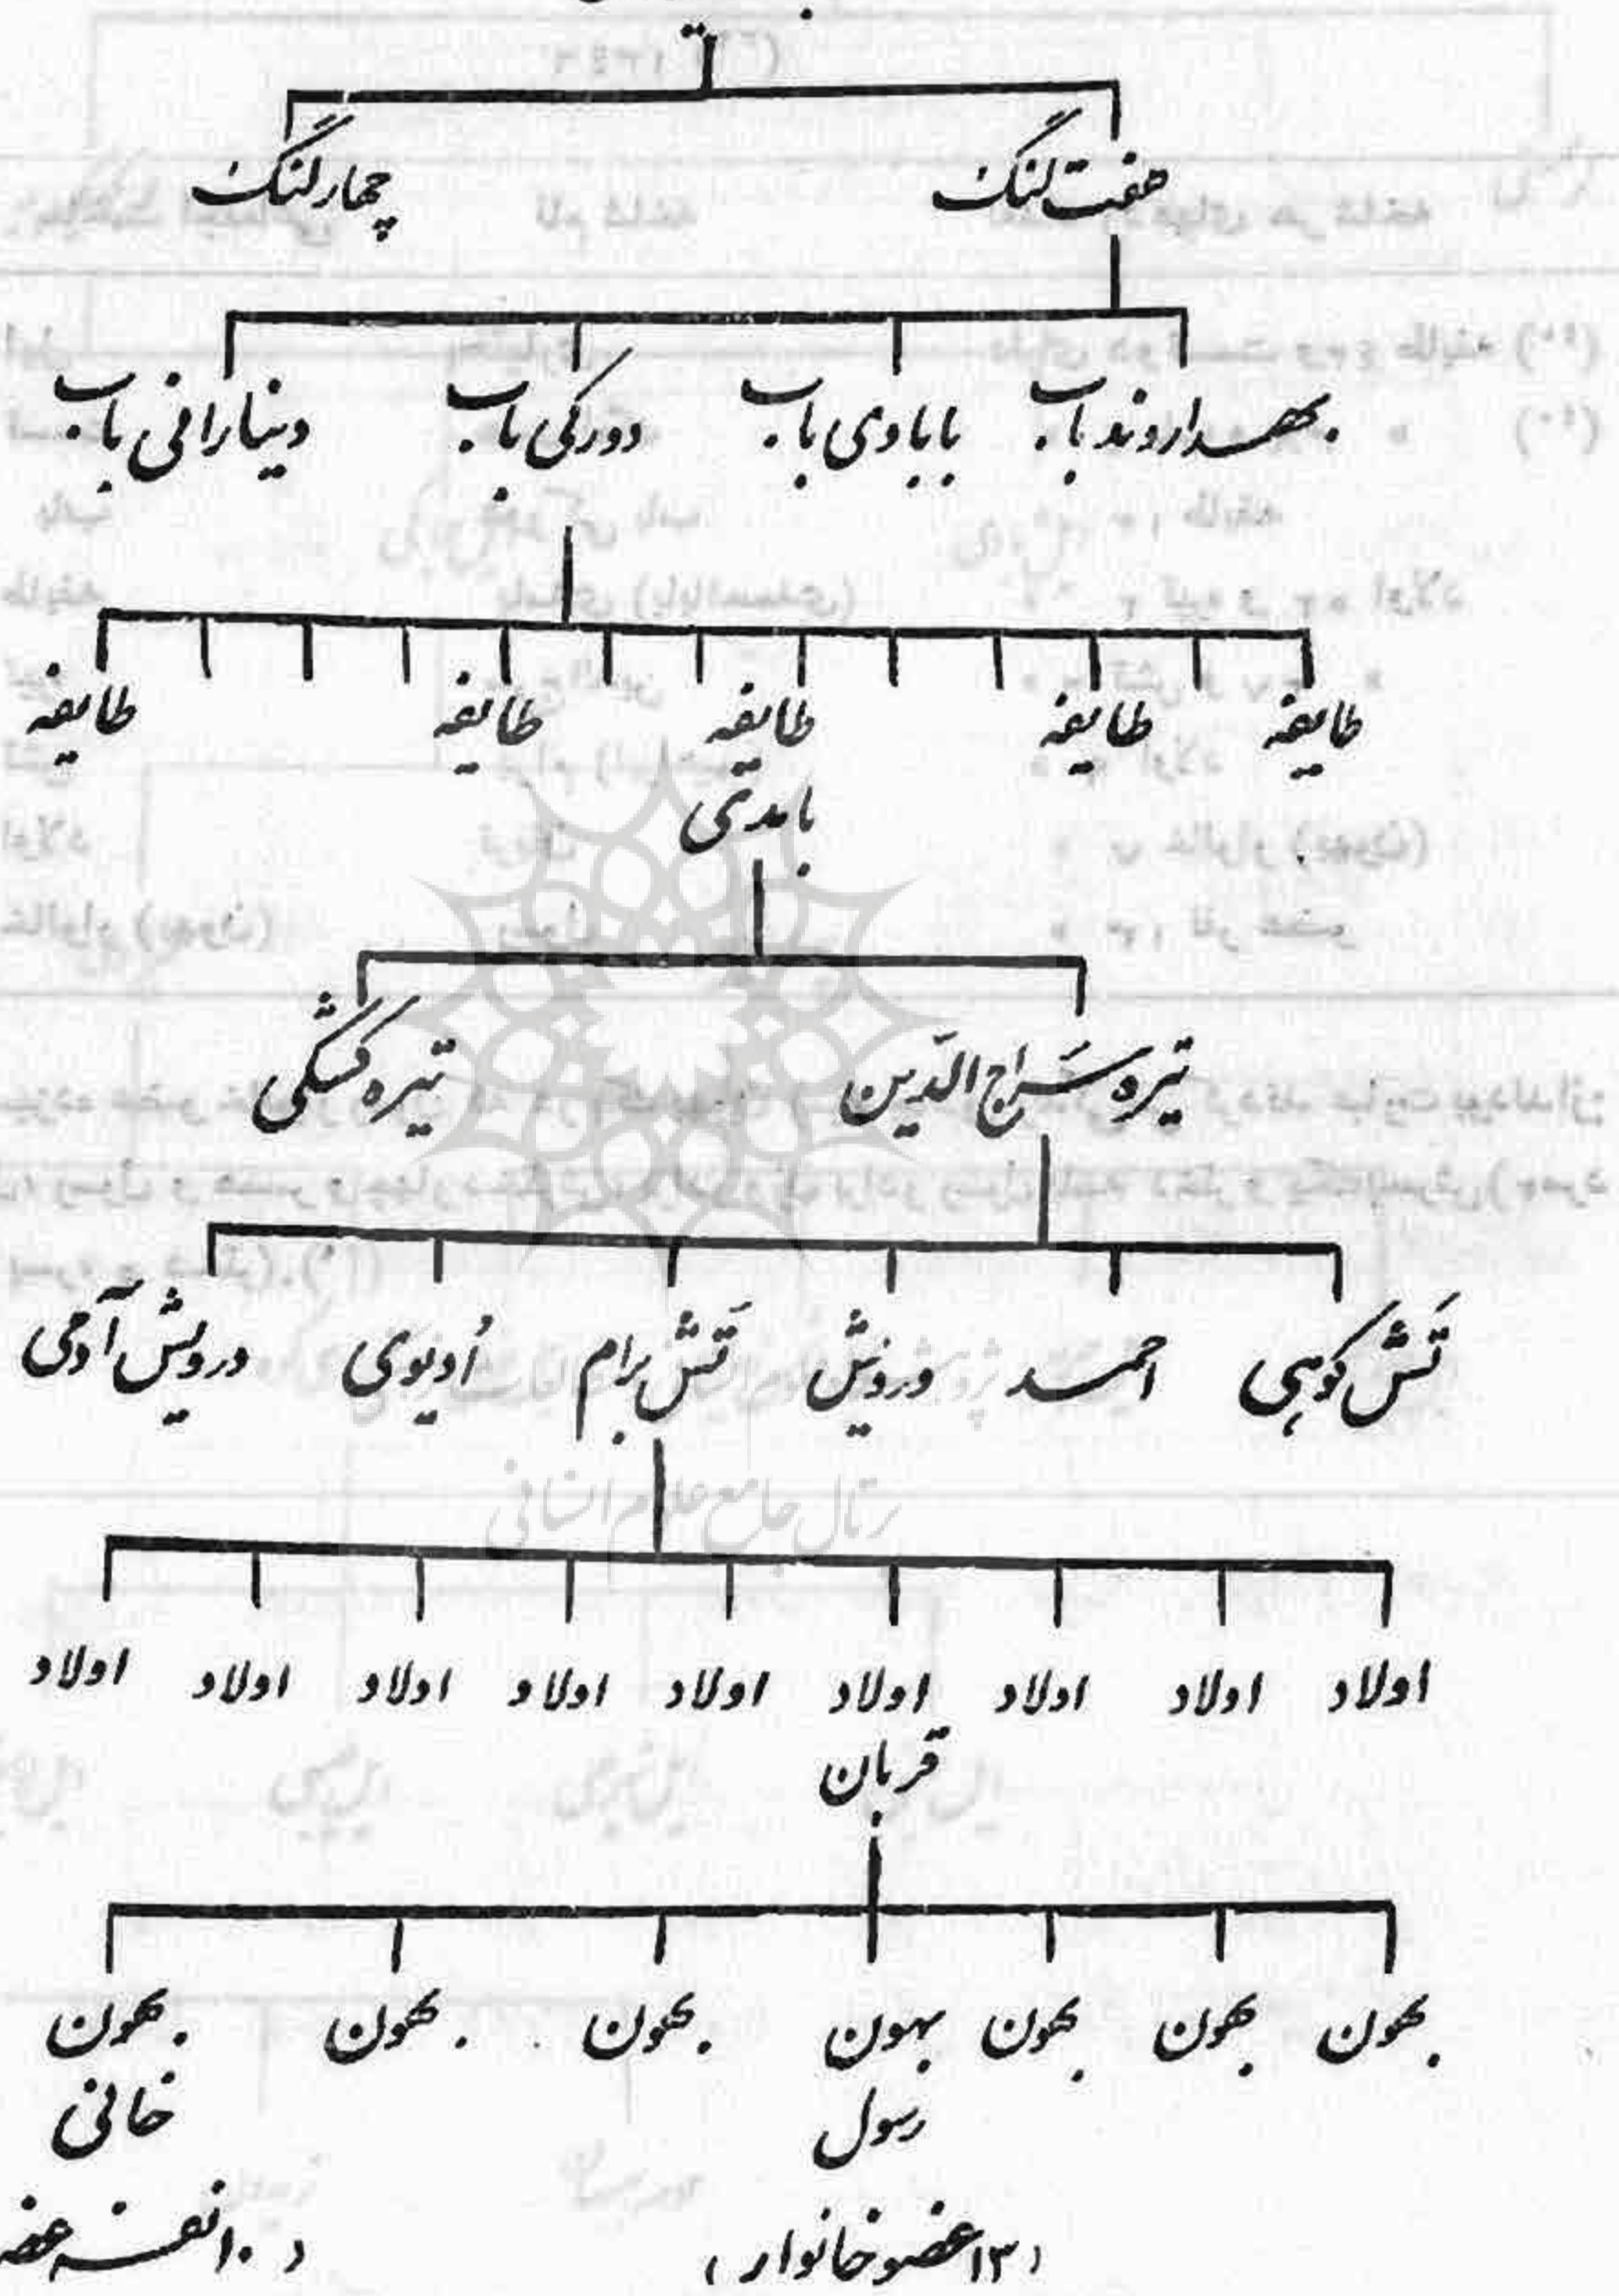 هفت لنگ چهار لنگ
بهداروند باب بابادی باب دورکی باب دینارانی باب
طایفه طایفه طایفه طایفه طایفه
بامدی
تیره سراج الدّین تیره کشکی
تَش کوهی احمد درویش تَش برام اُدیوی درویش آدمی
اولاد اولاد اولاد اولاد اولاد اولاد اولاد اولاد اولاد
قربان
بهون بهون بهون بهون بهون بهون بهون
رسول خانی
(۱۳ عضو خانوار) (۱۰ نفر عضو
رتال جامع علوم انسانی